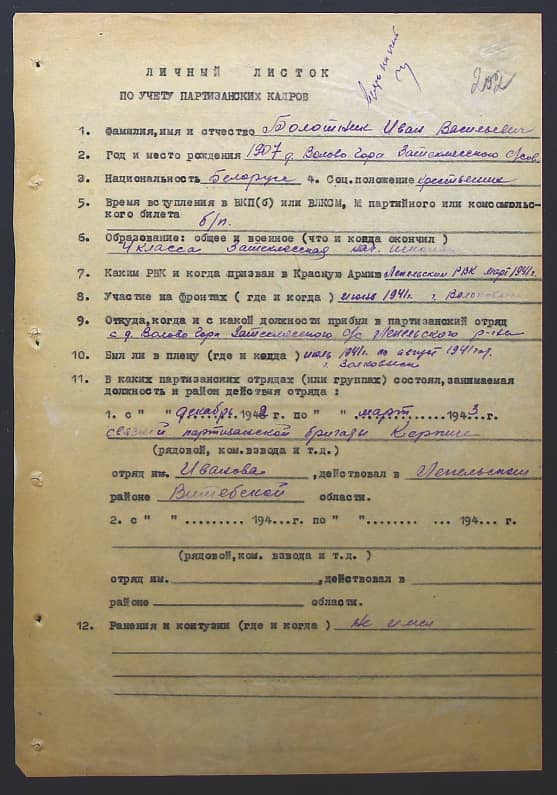 202
ЛИЧНЫЙ ЛИСТОК
ПО УЧЕТУ ПАРТИЗАНСКИХ КАДРОВ
1. Фамилия,имя и отчество Болотник Иван Васильевич
2. Год и место рождения 1907 д. Волова Гора
3. Национальность белорус 4. Соц.положение крестьянин
5. Время вступления в ВКП(б) или ВЛКСМ, № партийного или комсомоль-
ского билета б/п.
6. Образование: общее и военное (что и когда окончил )
4 класса
7. Каким РВК и когда призван в Красную Армию Лепельским РВК март 1941г.
8. Участие на фронтах ( где и когда ) июль 1941г. г.
9. Откуда,когда и с какой должности прибыл в партизанский отряд
с д. Волова Гора с/с Лепельского р-на
10. Был ли в плену (где и когда ) июль 1941г. по август 1941г.
г. Волковыск
11. В каких партизанских отрядах (или группах) состоял,занимаемая
должность и район действия отряда :
1. с " " декабрь 1942 г. по " " март 1943 г.
связной партизанской бригады
(рядовой, ком.взвода и т.д.)
отряд им. Иванова ,действовал в Лепельском
районе Витебской области.
2. с " " ......... 194...г. по " "........ ... 194... г.
(рядовой,ком. взвода и т.д. )
отряд им. ,действовал в
районе области.
12. Ранения и контузии (где и когда ) Не имел